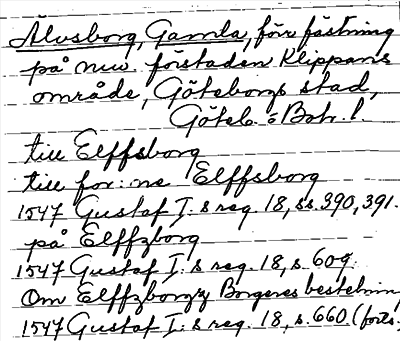 Älvsborg, Gamla, förr fästning
på nuv. förstaden Klippans
område, Göteborgs stad,
Göteb. o Boh. l.
till Elffsborg
till for:ne Elffsborg
1547 Gustaf I:s reg. 18, ss. 390, 391.
på Elffzborg
1547 Gustaf I:s reg. 18, s. 609.
Om Elffzborgz Borgeres bestelning
1547 Gustaf I:s reg. 18, s. 660. (forts.